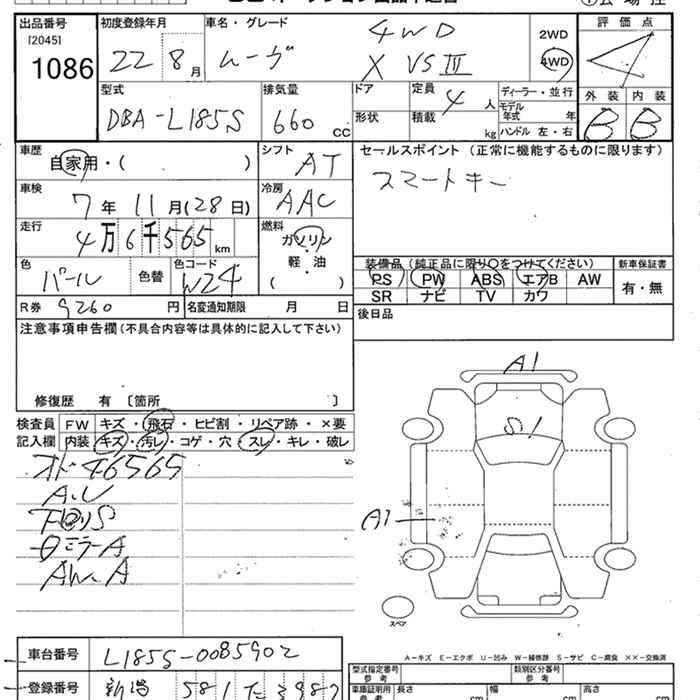 出品番号 [2045] 1086
初度登録年月 22 8 月
車名・グレード ムーヴ 4WD X VSⅢ
2WD
4WD
評価点 4
外装 内装
B B
型式 DBA-L185S
排気量 660 CC
ドア
形状
定員 4 人
積載 kg
ディーラー・並行
モデル年式 年
ハンドル 左・右
車歴 自家用・( )
シフト AT
セールスポイント (正常に機能するものに限ります)
スマートキー
車検 7 年 11 月(28 日)
冷房 AAC
走行 4万6千565 km
燃料 ガソリン 軽・油 ( )
色 パール 色替 色コード W24
装備品 (純正品に限り○をつけてください) 新車保証書
PS PW ABS エアB AW 有・無
SR ナビ TV カワ
R券 9260 円 名変通知期限 月 日
後日品
注意事項申告欄(不具合内容等は具体的に記入して下さい)
修復歴 有 〔箇所 〕
検査員 FW キズ・飛石・ヒビ割・リペア跡・×要
記入欄 内装 キズ・汚レ・コゲ・穴・スレ・キレ・破レ
オド 46565
A.U
下回りS
ミラーA
AW.A
A1
S1
A1
スペア
A-キズ E-エクボ U-凹み W-補修跡 S-サビ C-腐食 ××-交換済
車台番号 L185S-0085902
型式指定番号 参考
類別区分番号 参考
登録番号 新潟 581
車庫証明用 参考 長さ cm 幅 cm 高さ cm